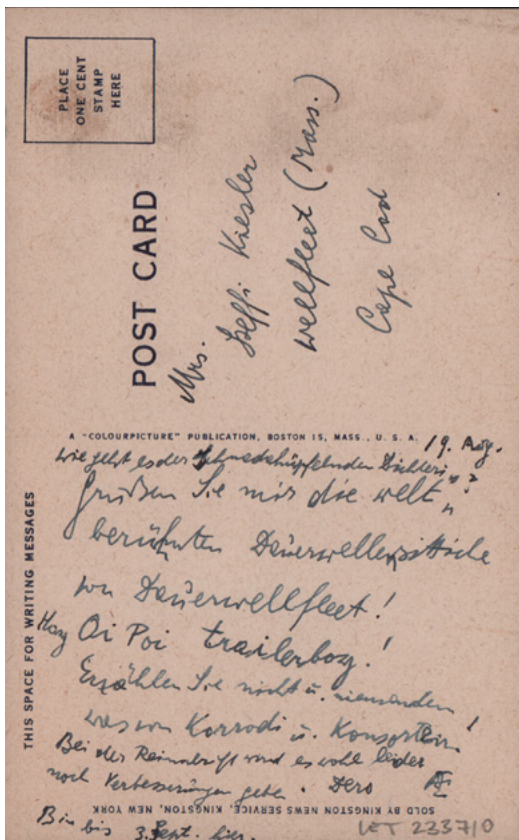 PLACE
ONE CENT
STAMP
HERE
POST CARD
Mrs.
Steffi Kiesler
Wellfleet (Mass.)
Cape Cod
A "COLOURPICTURE" PUBLICATION, BOSTON 15, MASS., U. S. A.
THIS SPACE FOR WRITING MESSAGES
19. Aug.
wie geht es der
Grüßen Sie mir die welt
berühmten Dauerwellensittiche
von Dauerwellfleet!
Oi Poi trailerboy!
Erzählen Sie nicht u. niemandem
was von Korrodi u. Konsorten!
Bei der Reinschrift wird es wohl leider
noch Verbesserungen geben. Dero
Bin bis 3. Sept. hier.
SOLD BY KINGSTON NEWS SERVICE, KINGSTON, NEW YORK
LET 2337/0